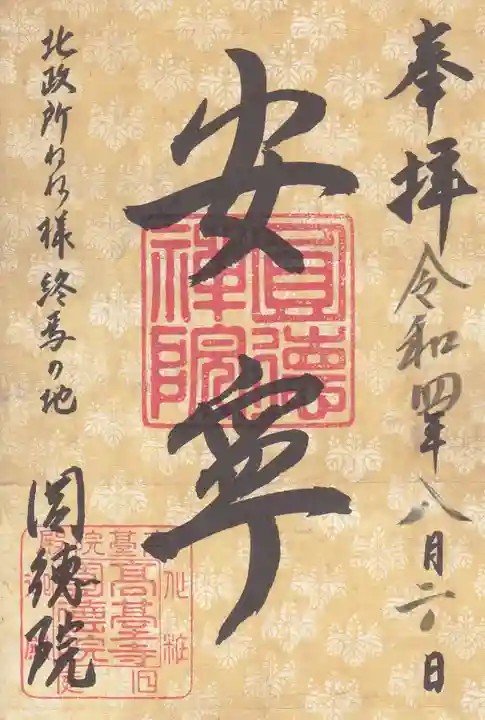 奉拝 令和四年八月二日
安寧
圓德禅院
北政所ねね様終焉の地
圓徳院
高臺寺